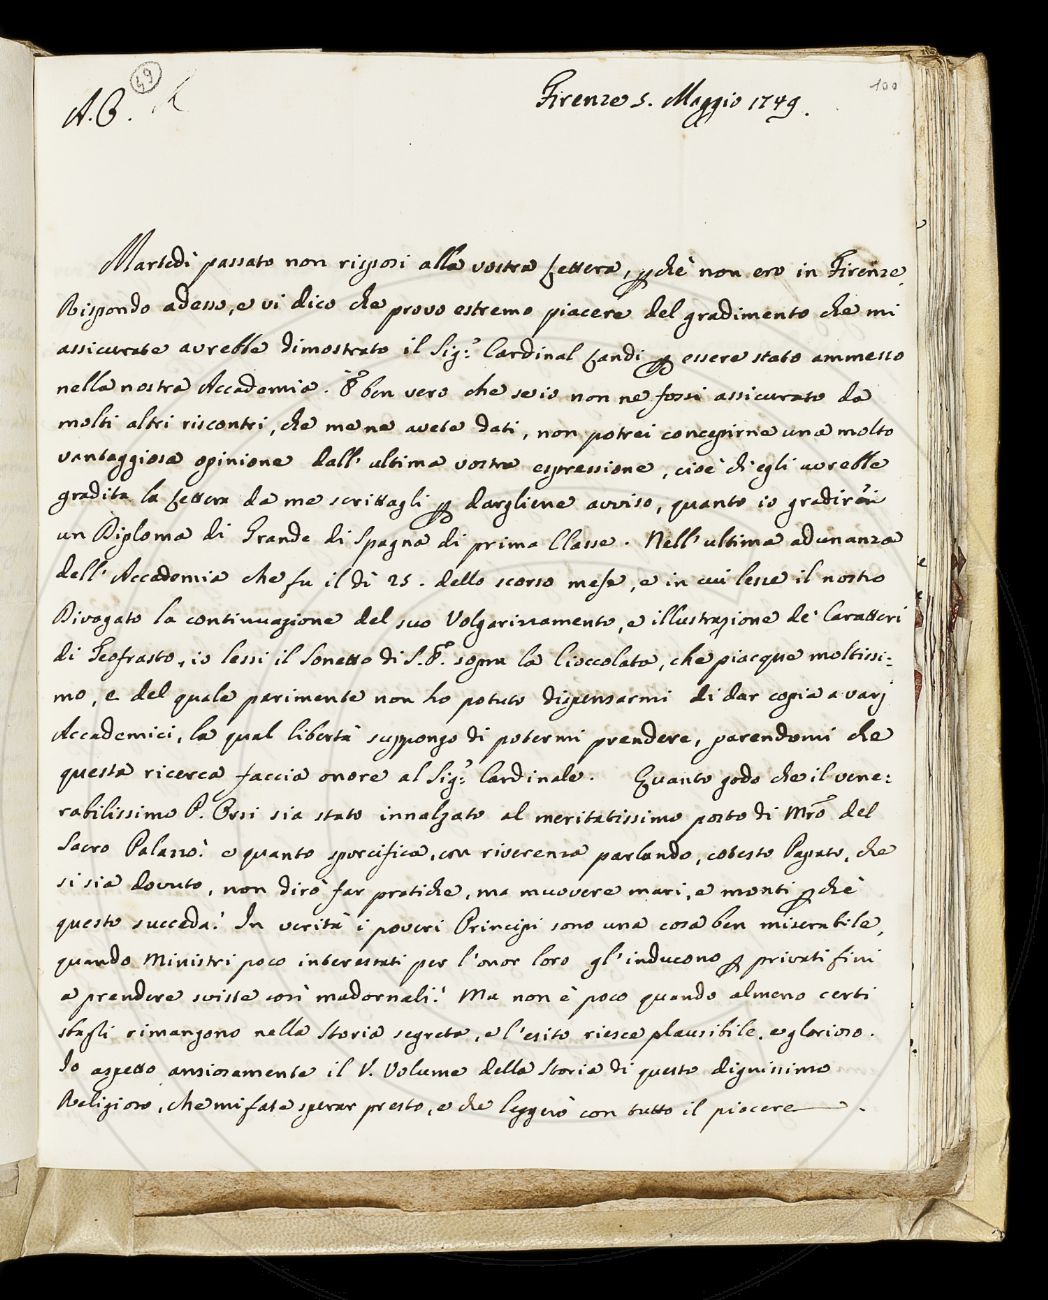 49
100
A. C.
Firenze 5. Maggio 1749.
Martedì passato non risposi alla vostra Lettera, p chè non ero in Firenze.
Rispondo adesso, e vi dico che provo estremo piacere del gradimento che mi
assicurate avrebbe dimostrato il Sig.r Cardinal Landi p essere stato ammesso
nella nostra Accademia. È ben vero che se io non ne fossi assicurato da
molti altri riscontri, che me ne avete dati, non potrei concepirne una molto
vantaggiosa opinione dall' ultima vostra espressione, cioè ch' egli avrebbe
gradita la Lettera da me scrittagli p dargliene avviso, quanto io gradirei
un Diploma di Grande di Spagna di prima Classe. Nell' ultima adunanza
dell' Accademia che fu il dì 25. dello scorso mese, e in cui lesse il nostro
Divogato la continuazione del suo Volgarizzamento, e illustrazione de' Caratteri
di Teofrasto, io lessi il Sonetto di S. E. sopra la Cioccolata, che piacque moltissi:
mo, e del quale parimente non ho potuto dispensarmi di dar copia a varj
Accademici, la qual libertà suppongo di potermi prendere, parendomi che
questa ricerca faccia onore al Sig.r Cardinale. Quanto godo che il vene:
rabilissimo P. Orsi sia stato innalzato al meritatissimo posto di Mro del
Sacro Palazzo! e quanto sporcifica, con riverenza parlando, codesto Papato, che
si sia dovuto, non dirò far pratiche, ma muovere mari, e monti p chè
questo succeda! In verità i poveri Principi sono una cosa ben miserabile,
quando Ministri poco interessati per l'onor loro gl'inducono p privati fini
a prendere sviste così madornali! Ma non è poco quando almeno certi
sbagli rimangono nella Storia segreta, e l'esito riesce plausibile, e glorioso.
Io aspetto ansiosamente il V. Volume della Storia di questo dignissimo
Religioso, che mi fate sperar presto, e che leggerò con tutto il piacere.